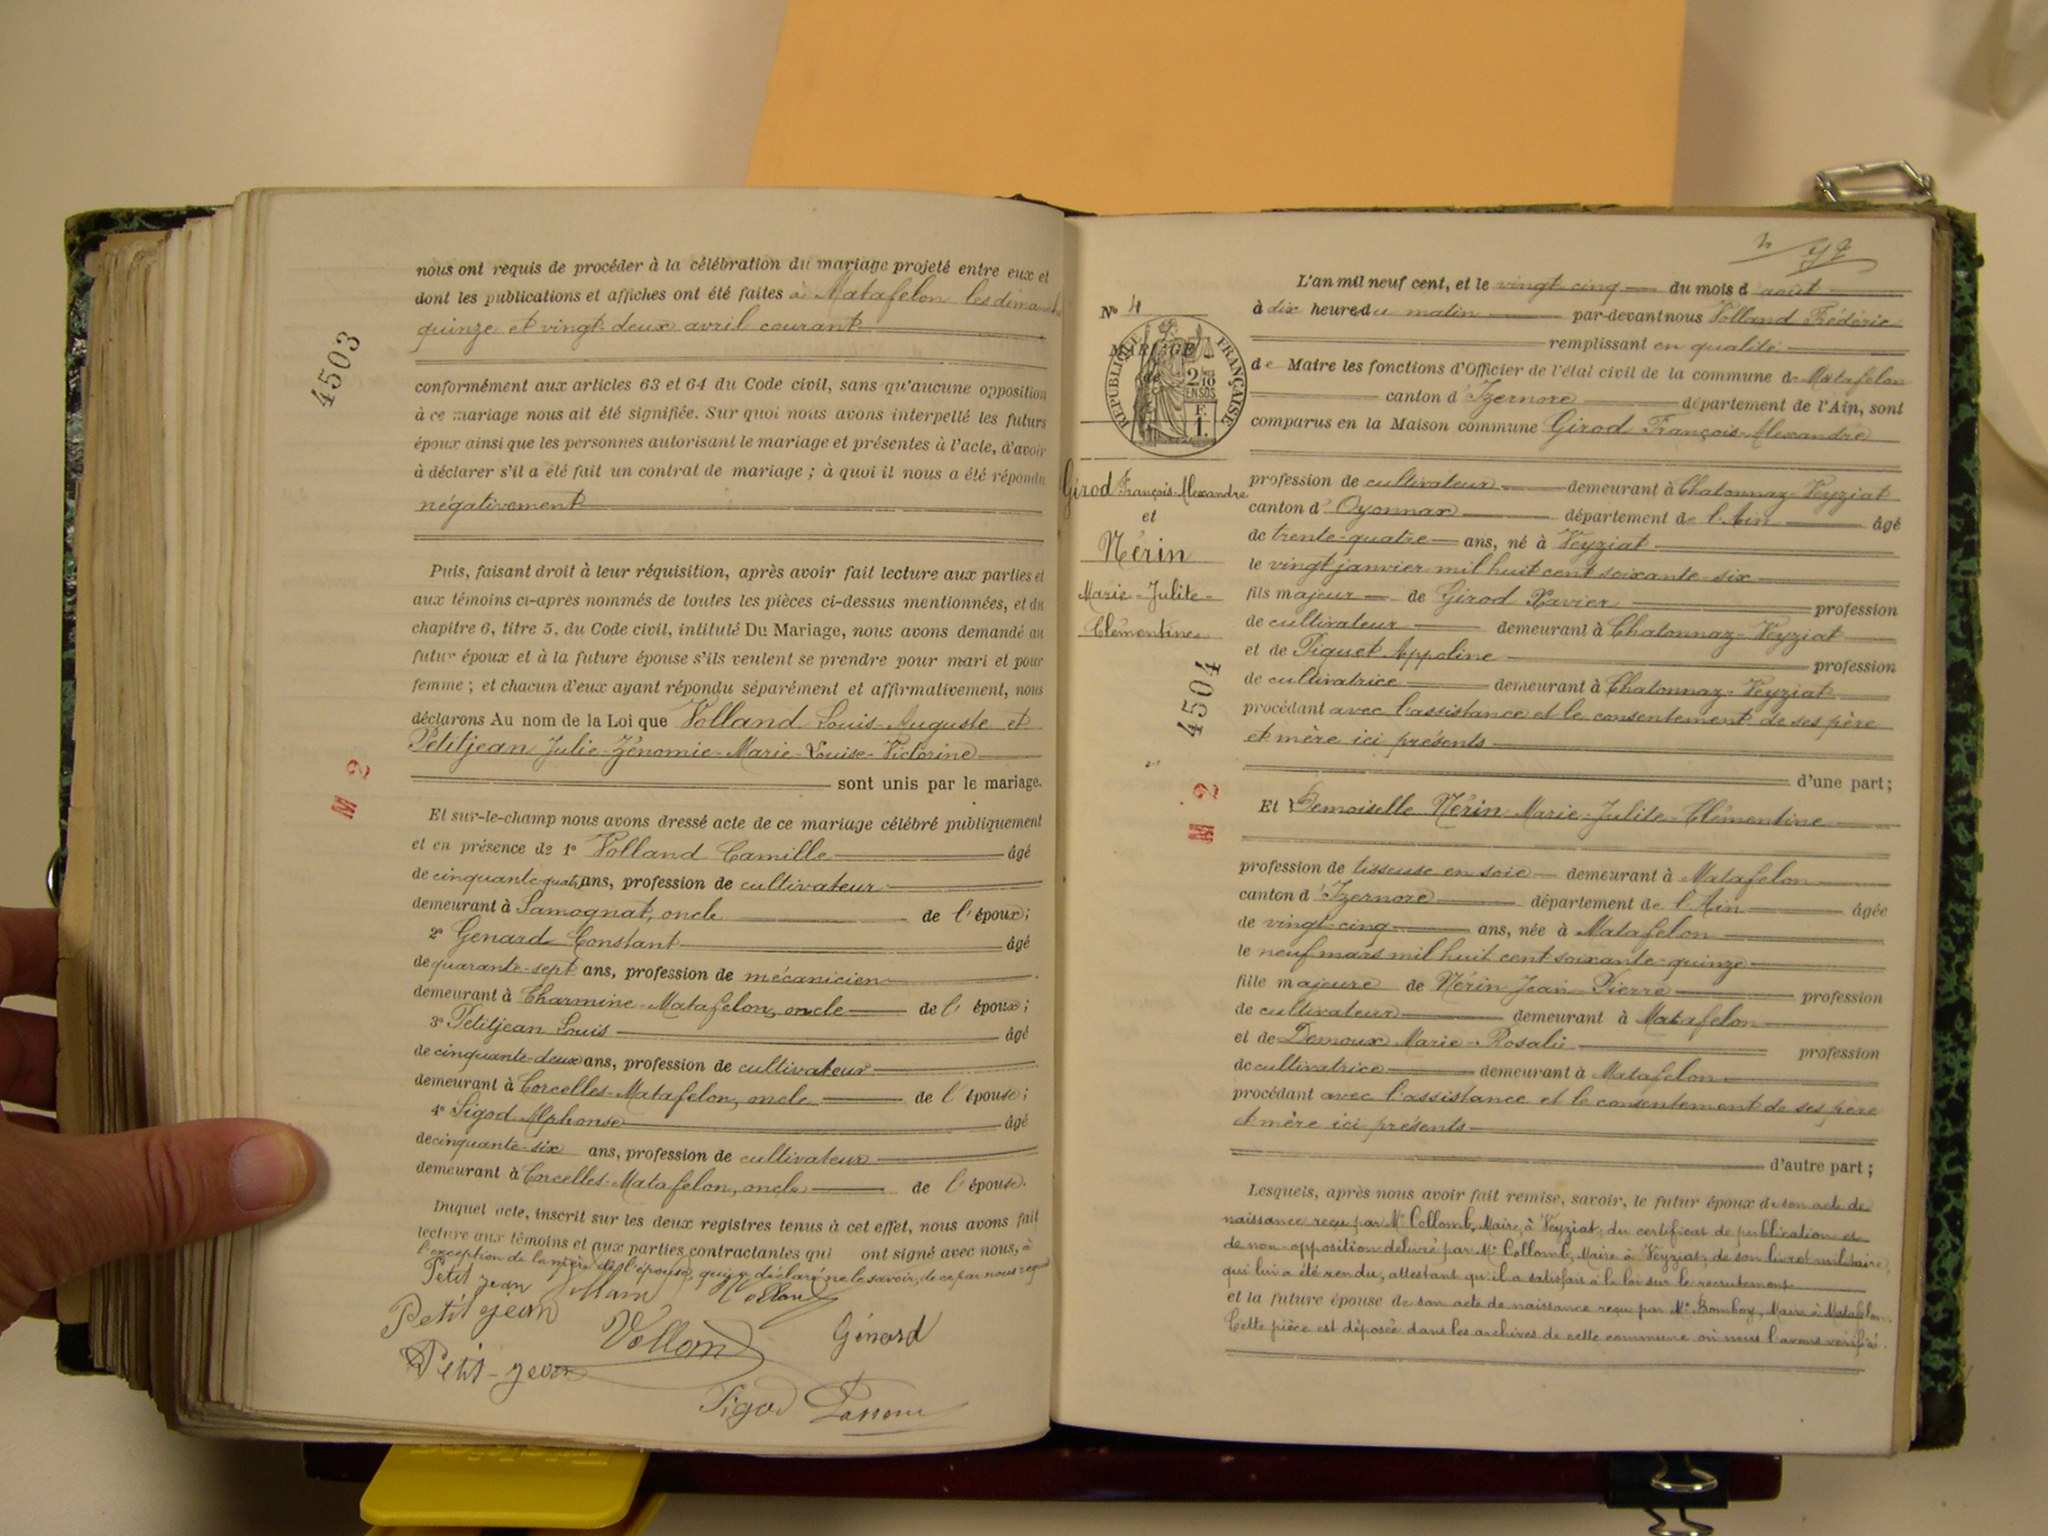 nous ont requis de procéder à la célébration du mariage projeté entre eux et
dont les publications et affiches ont été faites à Matafelon les dimanches
quinze et vingt-deux avril courant
4503
conformément aux articles 63 et 64 du Code civil, sans qu'aucune opposition
à ce mariage nous ait été signifiée. Sur quoi nous avons interpellé les futurs
époux ainsi que les personnes autorisant le mariage et présentes à l'acte, d'avoir
à déclarer s'il a été fait un contrat de mariage ; à quoi il nous a été répondu
négativement
Puis, faisant droit à leur réquisition, après avoir fait lecture aux parties et
aux témoins ci-après nommés de toutes les pièces ci-dessus mentionnées, et du
chapitre 6, titre 5, du Code civil, intitulé Du Mariage, nous avons demandé au
futur époux et à la future épouse s'ils veulent se prendre pour mari et pour
femme ; et chacun d'eux ayant répondu séparément et affirmativement, nous
déclarons Au nom de la Loi que Volland Louis-Auguste et
Petitjean Julie-Zénomie-Marie-Louise-Victorine
sont unis par le mariage.
M 2
Et sur-le-champ nous avons dressé acte de ce mariage célébré publiquement
et en présence de 1° Volland Camille âgé
de cinquante-quatre ans, profession de cultivateur
demeurant à Samognat, oncle de l'époux ;
2° Genard Constant âgé
de quarante-sept ans, profession de mécanicien
demeurant à Charmine-Matafelon, oncle de l'époux ;
3° Petitjean Louis âgé
de cinquante-deux ans, profession de cultivateur
demeurant à Corcelles-Matafelon, oncle de l'épouse ;
4° Sigod Alphonse âgé
de cinquante-six ans, profession de cultivateur
demeurant à Corcelles-Matafelon, oncle de l'épouse.
Duquel acte, inscrit sur les deux registres tenus à cet effet, nous avons fait
lecture aux témoins et aux parties contractantes qui ont signé avec nous, à
l'exception de la mère de l'épouse, qui a déclaré ne le savoir, de ce par nous requis
Petitjean Volland
Petitjean Volland Génard
Petit-jean
Sigod
N° 4
MARIAGE
de
RÉPUBLIQUE FRANÇAISE
2/10 EN SUS
F. 1.
Girod François-Alexandre
et
Nérin
Marie-Julite-
Clémentine
4504
M 2
L'an mil neuf cent, et le vingt-cinq du mois d'août
à dix heures du matin par-devant nous Volland Frédéric
remplissant en qualité
de Maire les fonctions d'Officier de l'état civil de la commune de Matafelon
canton d'Izernore département de l'Ain, sont
comparus en la Maison commune Girod François-Alexandre
profession de cultivateur demeurant à Chatonnaz-Veyziat
canton d'Oyonnax département de l'Ain âgé
de trente-quatre ans, né à Veyziat
le vingt janvier mil huit cent soixante-six
fils majeur de Girod Xavier profession
de cultivateur demeurant à Chatonnaz-Veyziat
et de Piquet Appoline profession
de cultivatrice demeurant à Chatonnaz-Veyziat
procédant avec l'assistance et le consentement de ses père
et mère ici présents
d'une part ;
Et Demoiselle Nérin Marie-Julite-Clémentine
profession de tisseuse en soie demeurant à Matafelon
canton d'Izernore département de l'Ain âgée
de vingt-cinq ans, née à Matafelon
le neuf mars mil huit cent soixante-quinze
fille majeure de Nérin Jean-Pierre profession
de cultivateur demeurant à Matafelon
et de Demoux Marie-Rosalie profession
de cultivatrice demeurant à Matafelon
procédant avec l'assistance et le consentement de ses père
et mère ici présents
d'autre part ;
Lesquels, après nous avoir fait remise, savoir, le futur époux de son acte de
naissance reçu par Mr Collomb, Maire, à Veyziat, du certificat de publication et
de non-opposition délivré par Mr Collomb, Maire à Veyziat, de son livret militaire,
qui lui a été rendu, attestant qu'il a satisfait à la loi sur le recrutement
et la future épouse de son acte de naissance reçu par Mr Bomboy, Maire à Matafelon.
Cette pièce est déposée dans les archives de cette commune où nous l'avons vérifié.